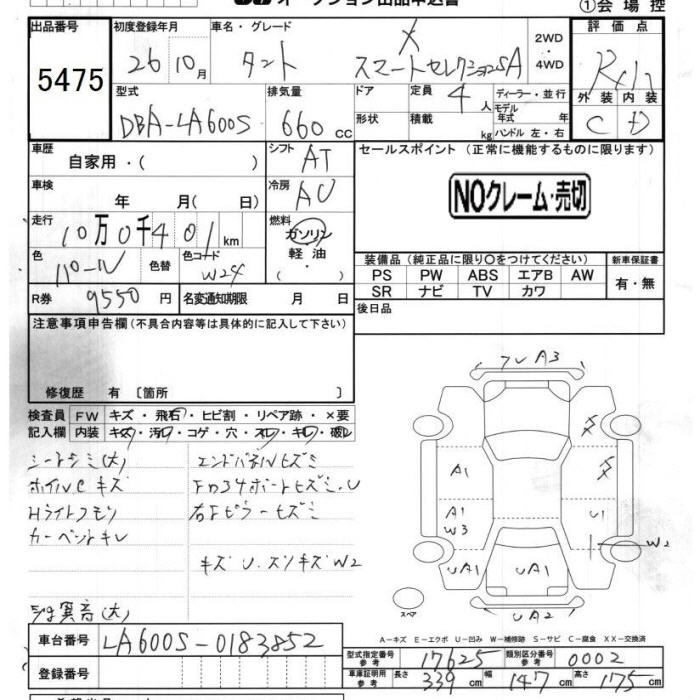 オークション出品申込書
①会場控
出品番号 5475
初度登録年月 26 10月
車名・グレード タント X スマートセレクションSA
2WD・4WD
評価点
外装 内装
C D
型式 DBA-LA600S
排気量 660 cc
ドア
形状
定員 4人
積載 kg
ディーラー・並行
モデル年式 年
ハンドル 左・右
車歴 自家用・( )
シフト AT
セールスポイント (正常に機能するものに限ります)
NOクレーム・売切
車検 年 月( 日)
冷房 AC
走行 10万0千401km
燃料 ガソリン 軽油 ・( )
色 パール 色替
色コード W24
装備品 (純正品に限り○をつけてください)
PS PW ABS エアB AW
SR ナビ TV カワ
新車保証書 有・無
R券 9550円
名変通知期限 月 日
後日品
注意事項申告欄 (不具合内容等は具体的に記入して下さい)
修復歴 有 〔箇所 〕
検査員記入欄
FW キズ・飛石・ヒビ割・リペア跡・×要
内装 キズ・汚レ・コゲ・穴・スレ・キレ・破レ
シートシミ(大)
ホイルCキズ
Hライトクモリ
エンドパネルヒズミ
キズU.ズリキズW2
(大)
A3
A1
A1
W3
U1
W2
UA1
UA1
UA2
スペア
A-キズ E-エクボ U-凹み W-補修跡 S-サビ C-腐食 XX-交換済
車台番号 LA600S-0183852
登録番号
型式指定番号 参考 17625
類別区分番号 参考 0002
車庫証明用 参考 長さ 339cm 幅 147cm 高さ 175cm